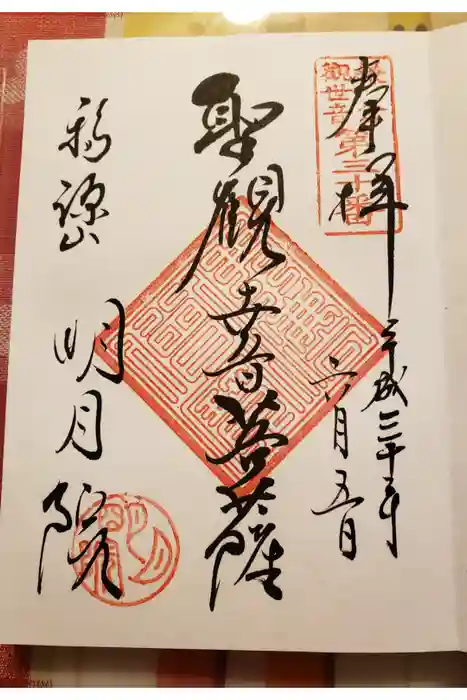 奉拝
觀世音第三十番
平成三十年
六月五日
聖觀世音菩薩
福源山 明月院